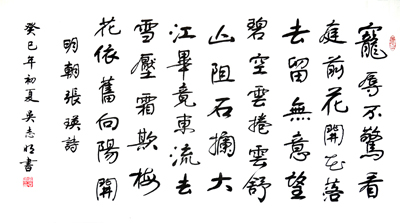 寵辱不驚看
庭前花開花落
去留無意望
碧空雲捲雲舒
山阻石攔大
江畢竟東流去
雪壓霜欺梅
花依舊向陽開
明朝張瑛詩
癸巳年初夏吳志明書